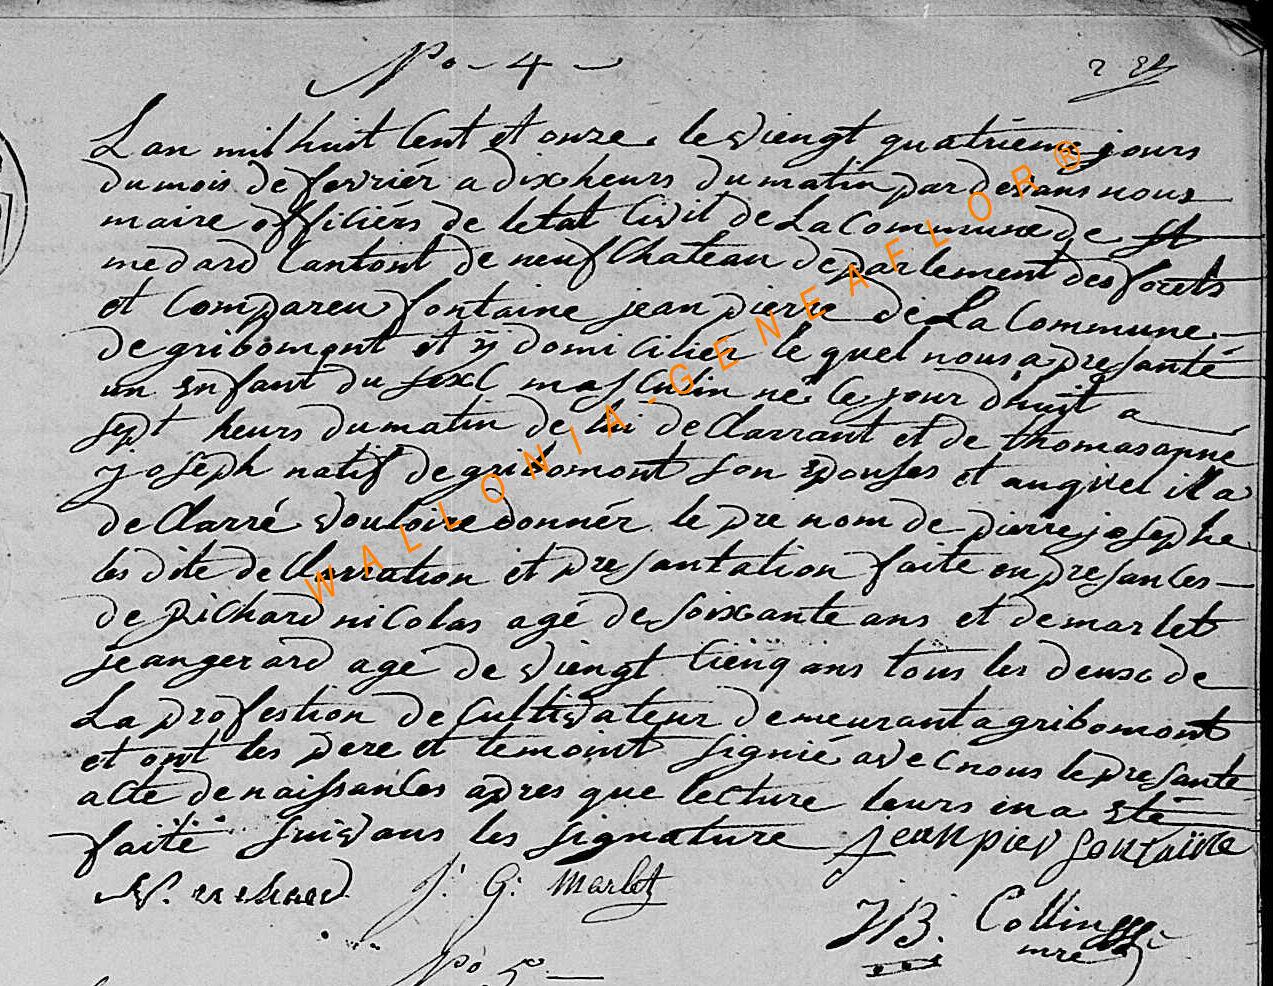 No - 4 -
Lan mil huit Cent et onze le viengt quatriéme jours
du mois de fevriér a dix heurs du matin par devans nous
maire officiérs de letat Civil de La Commune de St
medard Cantont de neufchateau departement des forets
et Compareu fontaine jean pierre de La Commune
de gribomont et y domicilier le quel nous a presanté
un enfant du sexe masculin né le jour d'huit a
sept heurs du matin de lui declarrant et de thomas anne
joseph natif de gribomont son epouses et auqu'el il a
de Clarré vouloire donnér le pre nom de pierre josephe
les dite declarration et presantation faite en presances
de Richard nicolas agé de soixante ans et de marlet
jean gerard agé de viengt Cienq ans tous les deux de
La profestion de Cultivateur demeurant a gribomont
et ont les pere et temoint signié avec nous le presante
acte de naissances apres que lecture leurs in a eté
faite suivans les signature jean pier fontaine
N. richard J: G: Marlet
JB. Collin
mre
No 5 -
WALLONIA-GENEAFLOR®